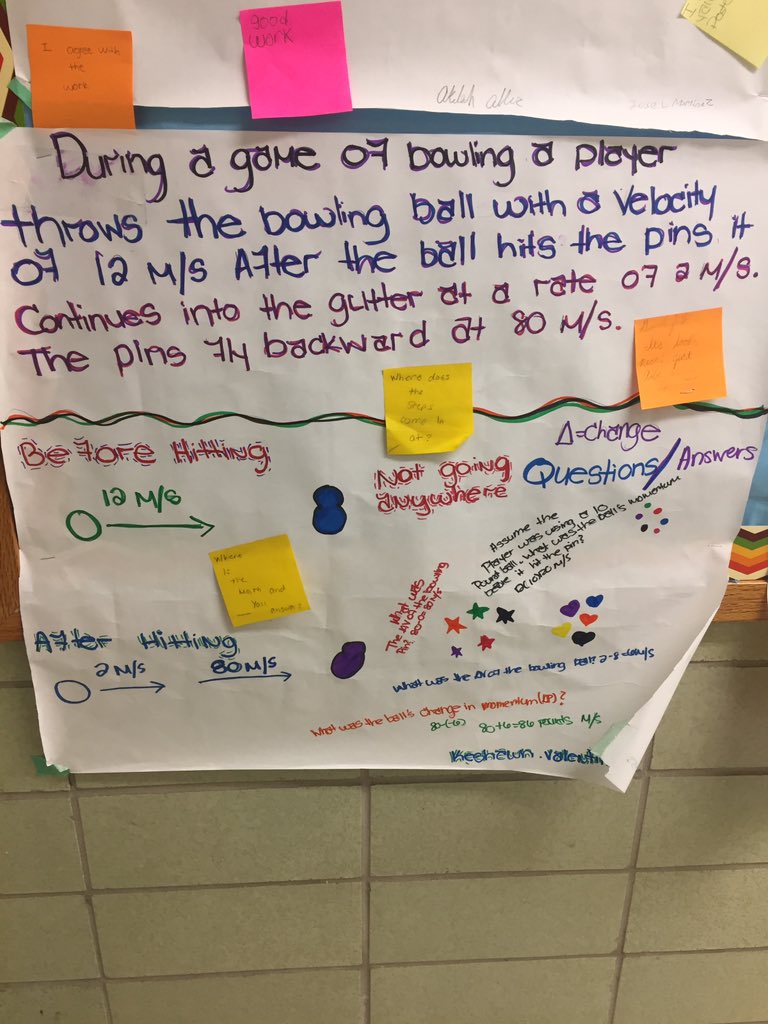 I agree with
the
work
good
work
During a game of bowling a player
throws the bowling ball with a velocity
of 12 M/S After the ball hits the pins it
Continues into the gutter at a rate of 2 M/S.
The pins fly backward at 80 M/S.
Where does
the
steps
come in
at?
Before Hitting
12 M/S
Not going
anywhere
Δ=change
Questions/Answers
Assume the
Player was using a 10
Pound ball. what was the ball's momentum
before it hit the pin?
What was
The Δv of the bowling
Pin? 80-0=80 M/S
Where
is
the
Math and
You answer?
After Hitting
2 M/S
80 M/S
What was the Δv of the bowling ball?
What was the ball's change in momentum(ΔP)?
80-(-6)
80+6=86 pounds M/S
Keshawn Valentin